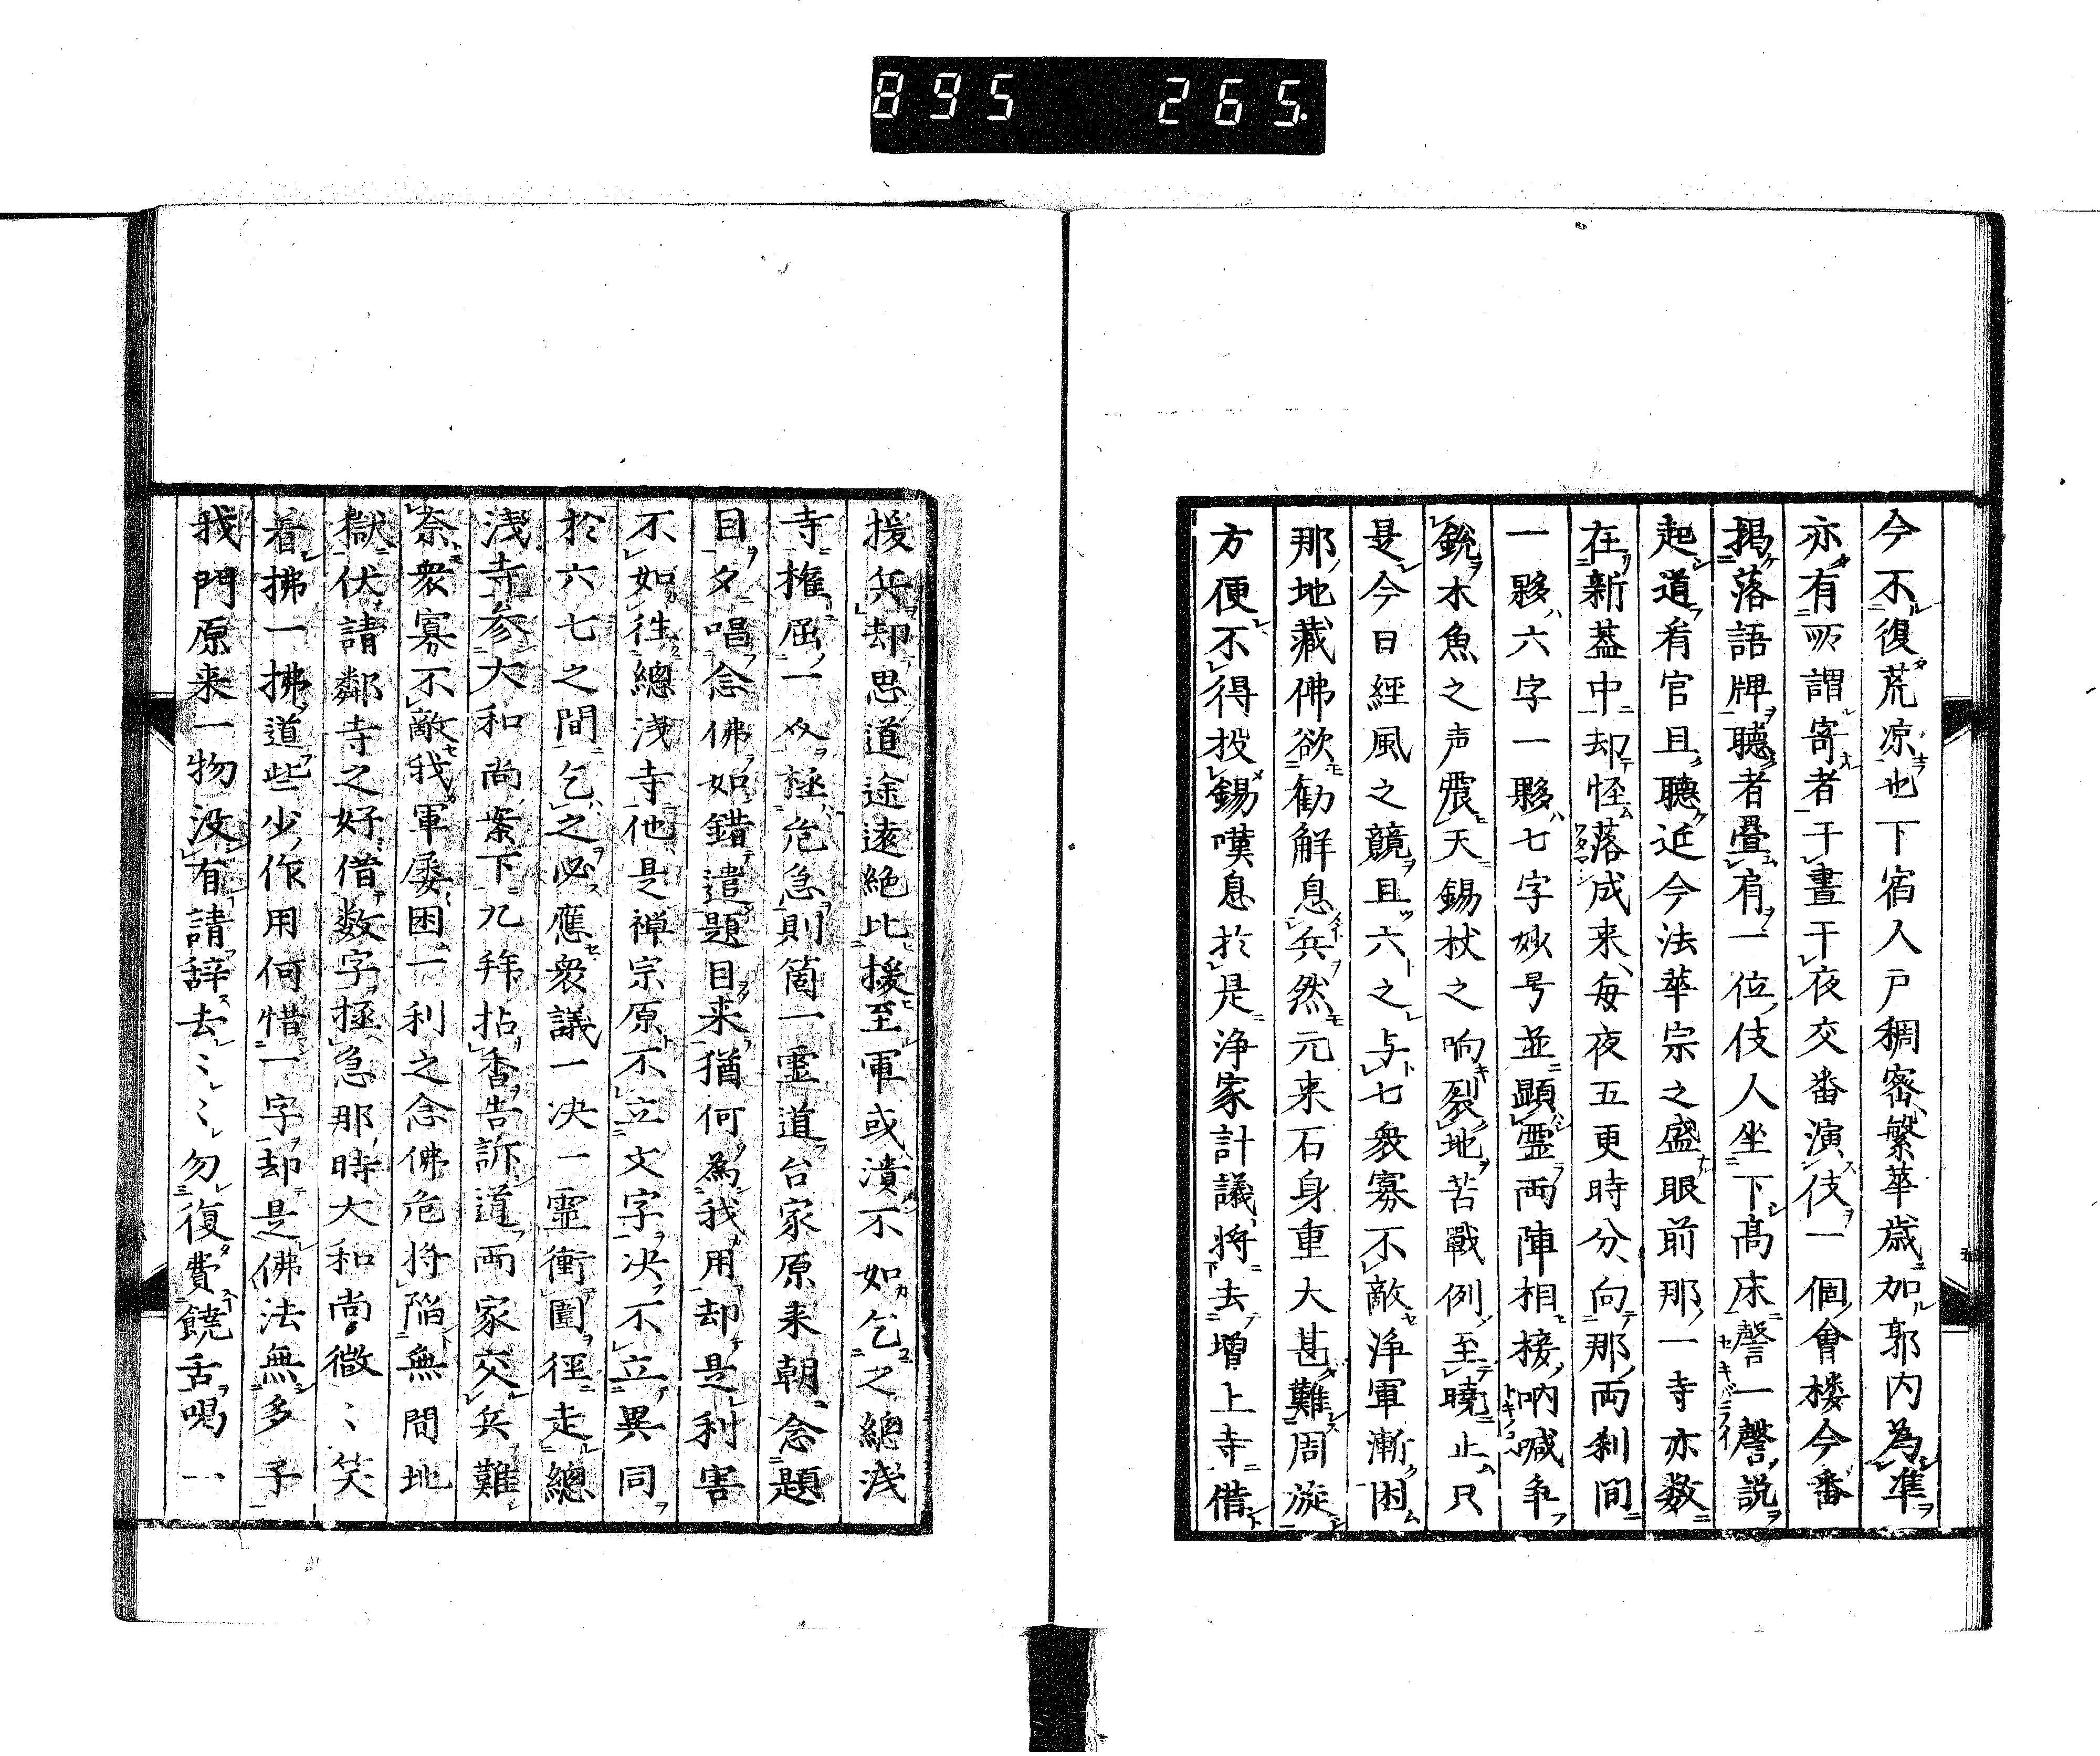 895 265.
今不復荒凉也下宿人戸稠密繁華歳加郭内為準
亦有所謂寄者干晝干夜交番演伎一個會楼今番
掲落語牌聽者疊有一位伎人坐下高床謦一謦説
起道有官且聽近今法華宗之盛眼前那一寺亦数
在新葢中却怪落成来毎夜五更時分向那両刹間
一夥六字一夥七字妙号並顕霊両陣相接吶喊争
鋭木魚之声震天錫杖之响裂地苦戰例至曉止只
是今日經風之競且六之与七衆寡不敵浄軍漸困
那地藏佛欲勧解息兵然元来石身重大甚難周漩
方便不得投錫嘆息於是浄家計議将去増上寺借
援兵却思道途遠絶比援至軍或潰不如乞之總浅
寺権屈一攵極危急則箇一霊道台家原来朝念題
目夕唱念佛如錯遣題目来猶何為我用却是利害
不如往總浅寺他是禅宗原不立文字决不立異同
於六七之間乞之必應衆議一决一霊衝圍徑走總
浅寺参大和尚案下九拜拈香告訴道両家交兵難
奈衆寡不敵我軍屡困一利之念佛危将陥無間地
獄伏請鄰寺之好借数字拯急那時大和尚微〻笑
着拂一拂道些少作用何惜一字却是佛法無多子
我門原来一物没有請辞去〻〻勿復費饒舌喝一